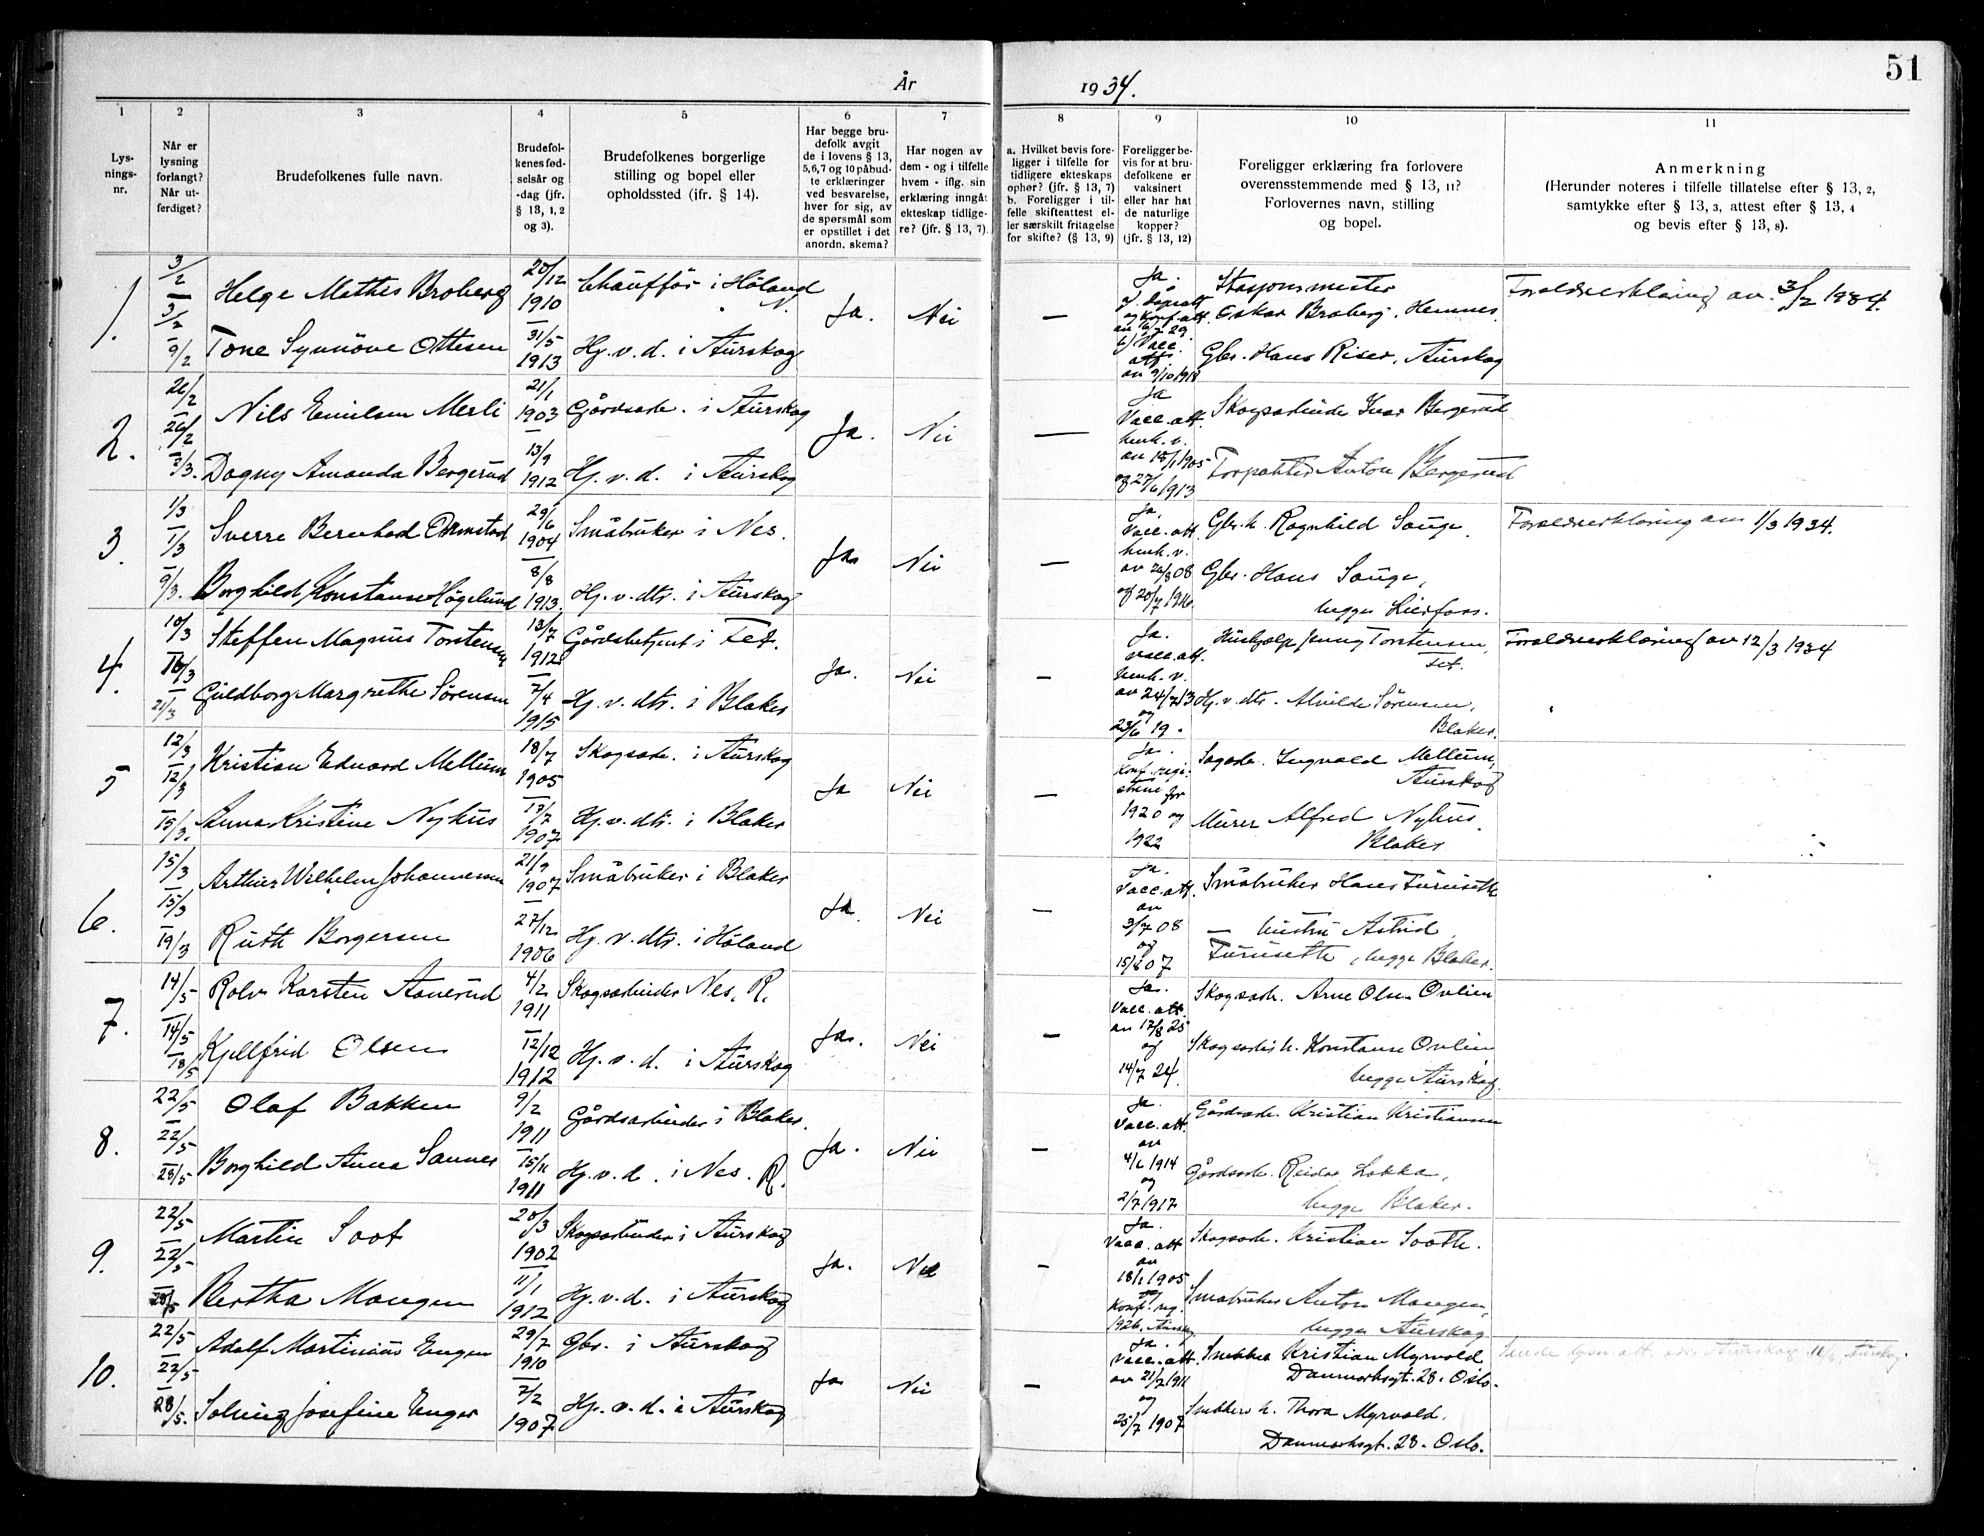 51
År 1934.
1
2
3
4
5
6
7
8
9
10
11
Lys-
nings-
nr.
Når er
lysning
forlangt?
Når ut-
ferdiget?
Brudefolkenes fulle navn.
Brudefol-
kenes fød-
selsår og
-dag (jfr.
§ 13, 1, 2
og 3).
Brudefolkenes borgerlige
stilling og bopel eller
opholdssted (ifr. § 14).
Har begge bru-
defolk avgit
de i lovens § 13,
5,6,7 og 10 påbud-
te erklæringer
ved besvarelse,
hver for sig, av
de spørsmål som
er opstillet i det
anordn. skema?
Har nogen av
dem - og i tilfelle
hvem - iflg. sin
erklæring inngåt
ekteskap tidlige-
re? (jfr. § 13, 7).
a. Hvilket bevis fore-
ligger i tilfelle for
tidligere ekteskaps
ophør? (jfr. § 13, 7)
b. Foreligger i til-
felle skifteattest el-
ler særskilt fritagelse
for skifte? (§ 13, 9)
Foreligger be-
vis for at bru-
defolkene er
vaksinert
eller har hat
de naturlige
kopper?
(jfr. § 13, 12)
Foreligger erklæring fra forlovere
overensstemmende med § 13, 11?
Forlovernes navn, stilling
og bopel.
Anmerkning
(Herunder noteres i tilfelle tillatelse efter § 13, 2,
samtykke efter § 13, 3, attest efter § 13, 4
og bevis efter § 13, 8).
1.
3/2
3/2
9/2
Helge Mathis Broberg
20/12
1910
Chauffør i Höland
Ja.
Nei
—
Ja.
Stasjonsmester
Oskar Broberg, Hemnes.
Foreldreerklæring av 3/2 1934.
Tone Synnöve Ottesen
31/5
1913
Hj. v. d. i Aurskog
Vacc.
att.
av 9/10 1918
Gbr. Hans Riser, Aurskog
2.
26/2
26/2
2/3.
Nils Emilsen Merli
21/1
1903
Gårdsarb. i Aurskog
Ja.
Nei
—
Ja
Vacc. att.
henh. v.
av 15/1 1905
og 27/6 1913
Skogsarbeider Ivar Bergerud
Dagny Amanda Bergerud
13/9
1912
Hj. v. d. i Aurskog
Forpakter Anton Bergerud
3.
1/3
1/3
9/3.
Sverre Bernhard Ormstad
29/6
1904
Småbruker i Nes.
Ja
Nei
—
Ja.
Vacc. att.
henh. v.
av 26/8 08
og 20/7 1916.
Gbr. h. Ragnhild Sauge.
Foreldreerklæring av 1/3 1934.
Borghild Konstanse Högelund
8/8
1913.
Hj. v. dtr. i Aurskog
Gbr. Hans Sauge,
begge Lierfoss.
4.
10/3
21/3
Steffen Magnus Torstensen
13/7
1912
Gårdsbetjent i Fet.
Ja.
Nei
—
Ja.
Vacc. att.
henh. v.
av 24/7 13
og
23/6 19.
Hushjelp Jenny Torstensen,
Fet.
Foreldreerklæring av 12/3 1934
Guldborg Margrethe Sörensen
7/4
1915
Hj. v. dtr. i Blaker
Hj. v. dtr. Alvilde Sörensen,
Blaker.
5
12/3
12/3
15/3.
Kristian Edvard Mellum
18/7
1905
Skogsarb. i Aurskog
Ja
Nei
—
Ja.
Konf. regi-
strene for
1920 og
1922
Sagarb. Ingvald Mellum,
Aurskog
Anna Kristine Nyhus
17/7
1907
Hj. v. dtr. i Blaker
Murer Alfred Nyhus,
Blaker
6.
15/3
15/3
19/3
Arthur Wilhelm Johannessen
21/9
1907
Småbruker i Blaker
Ja.
Nei
—
Ja.
Vacc. att.
av
3/7 08
og
Småbruker Hans Furuseth
Ruth Borgersen
27/12
1906
Hj. v. dtr. i Höland
— hustru Astrid
Furuseth, begge Blaker.
7.
14/5
14/5
18/5
Rolv Karsten Aanerud
4/2
1911
Skogsarbeider Nes, R.
Ja.
Nei
—
Ja.
Vacc. att.
av 17/8 25
og
14/7 24.
Skogsarb. Arne Olsen Ovlien
Kjellfrid Olsen
12/12
1912
Hj. v. d. i Aurskog
Skogsarb. h. Konstanse Ovlien,
begge Aurskog.
8.
22/5
22/5
28/5
Olaf Bakken
9/2
1911
Gårdsarbeider i Blaker.
Ja.
Nei
—
Ja.
Vacc. att.
av
4/6 1914
og
2/7 1917
Gårdsarb. Kristian Kristiansen
Borghild Anna Sannes
15/11
1911
Hj. v. d. i Nes. R.
Gårdsarb. Reidar Løkka,
begge Blaker.
9.
22/5
22/5
28/5
Martin Soot
20/3
1902
Skogsarbeider i Aurskog
Ja.
Nei
—
Ja.
Vacc. att
av
18/1 1905
og
Konf. reg.
1926, Aurskog
Skogsarb. Kristian Sooth.
Bertha Mangen
11/1
1912
Hj. v. d. i Aurskog
Småbruker Anton Mangen,
begge Aurskog
10.
22/5
22/5
28/5.
Adolf Martinius Enger
29/7
1910
Gbr. i Aurskog
Ja
Nei
—
Ja.
Vacc. att
av 21/2 1911
og
25/7 1907
Snekker Kristian Myrvold
Danmarksgt. 28. Oslo.
Solveig Josefine Enger
7/2
1907
Hj. v. d. i Aurskog
Snekkers h. Thora Myrvold,
Danmarksgt. 28. Oslo.